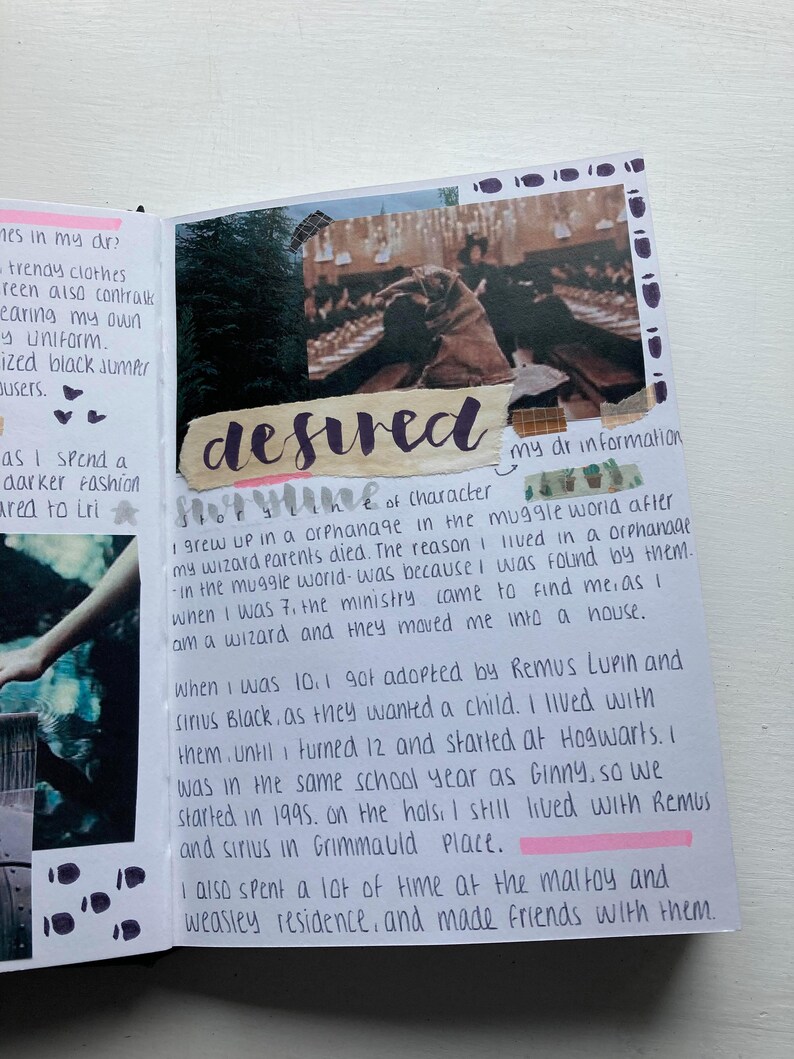 nes in my dr?
trendy clothes
reen also contrails
earing my own
y uniform.
ized black jumper
users.
as I spend a
darker fashion
ared to Lri
desired
my dr information
storyline of character
I grew up in a orphanage in the muggle world after
my wizard parents died. The reason I lived in a orphanage
-in the muggle world- was because I was found by them.
when I was 7, the ministry came to find me, as I
am a wizard and they moved me into a house.
when I was 10, I got adopted by Remus Lupin and
Sirius Black, as they wanted a child. I lived with
them, until I turned 12 and started at Hogwarts. I
was in the same school year as Ginny, so we
started in 1995. on the hols, I still lived with Remus
and Sirius in Grimmauld Place.
I also spent a lot of time at the malfoy and
weasley residence, and made friends with them.